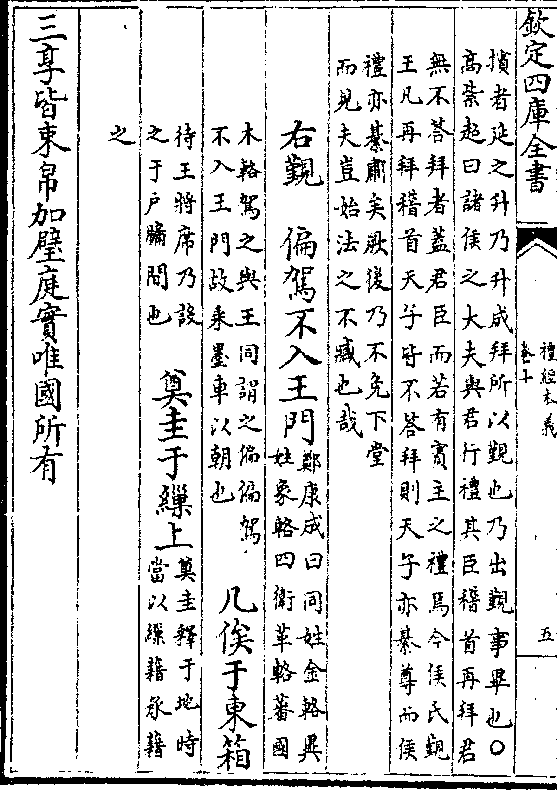 欽定四庫全書
禮經本義
卷十
五
擯者延之升乃升成拜所以覲也乃出覲事畢也○
高紫超曰諸侯之大夫與君行禮其臣稽首再拜君
無不答拜者蓋君臣而若有賓主之禮焉今侯氏覲
王凡再拜稽首天子皆不答拜則天子亦綦尊而侯
禮亦綦肅矣厥後乃不免下堂
而見夫豈始法之不臧也哉
右覲　偏駕不入王門
鄭康成曰同姓金輅異
姓象輅四衛革輅蕃國
木輅駕之與王同謂之偏偏駕
不入王門故乘墨車以朝也
几俟于東箱
待王將席乃設
之于戶牖間也
奠圭于繅上
奠圭釋于地時
當以繅藉承藉
之
三享皆束帛加璧庭實唯國所有